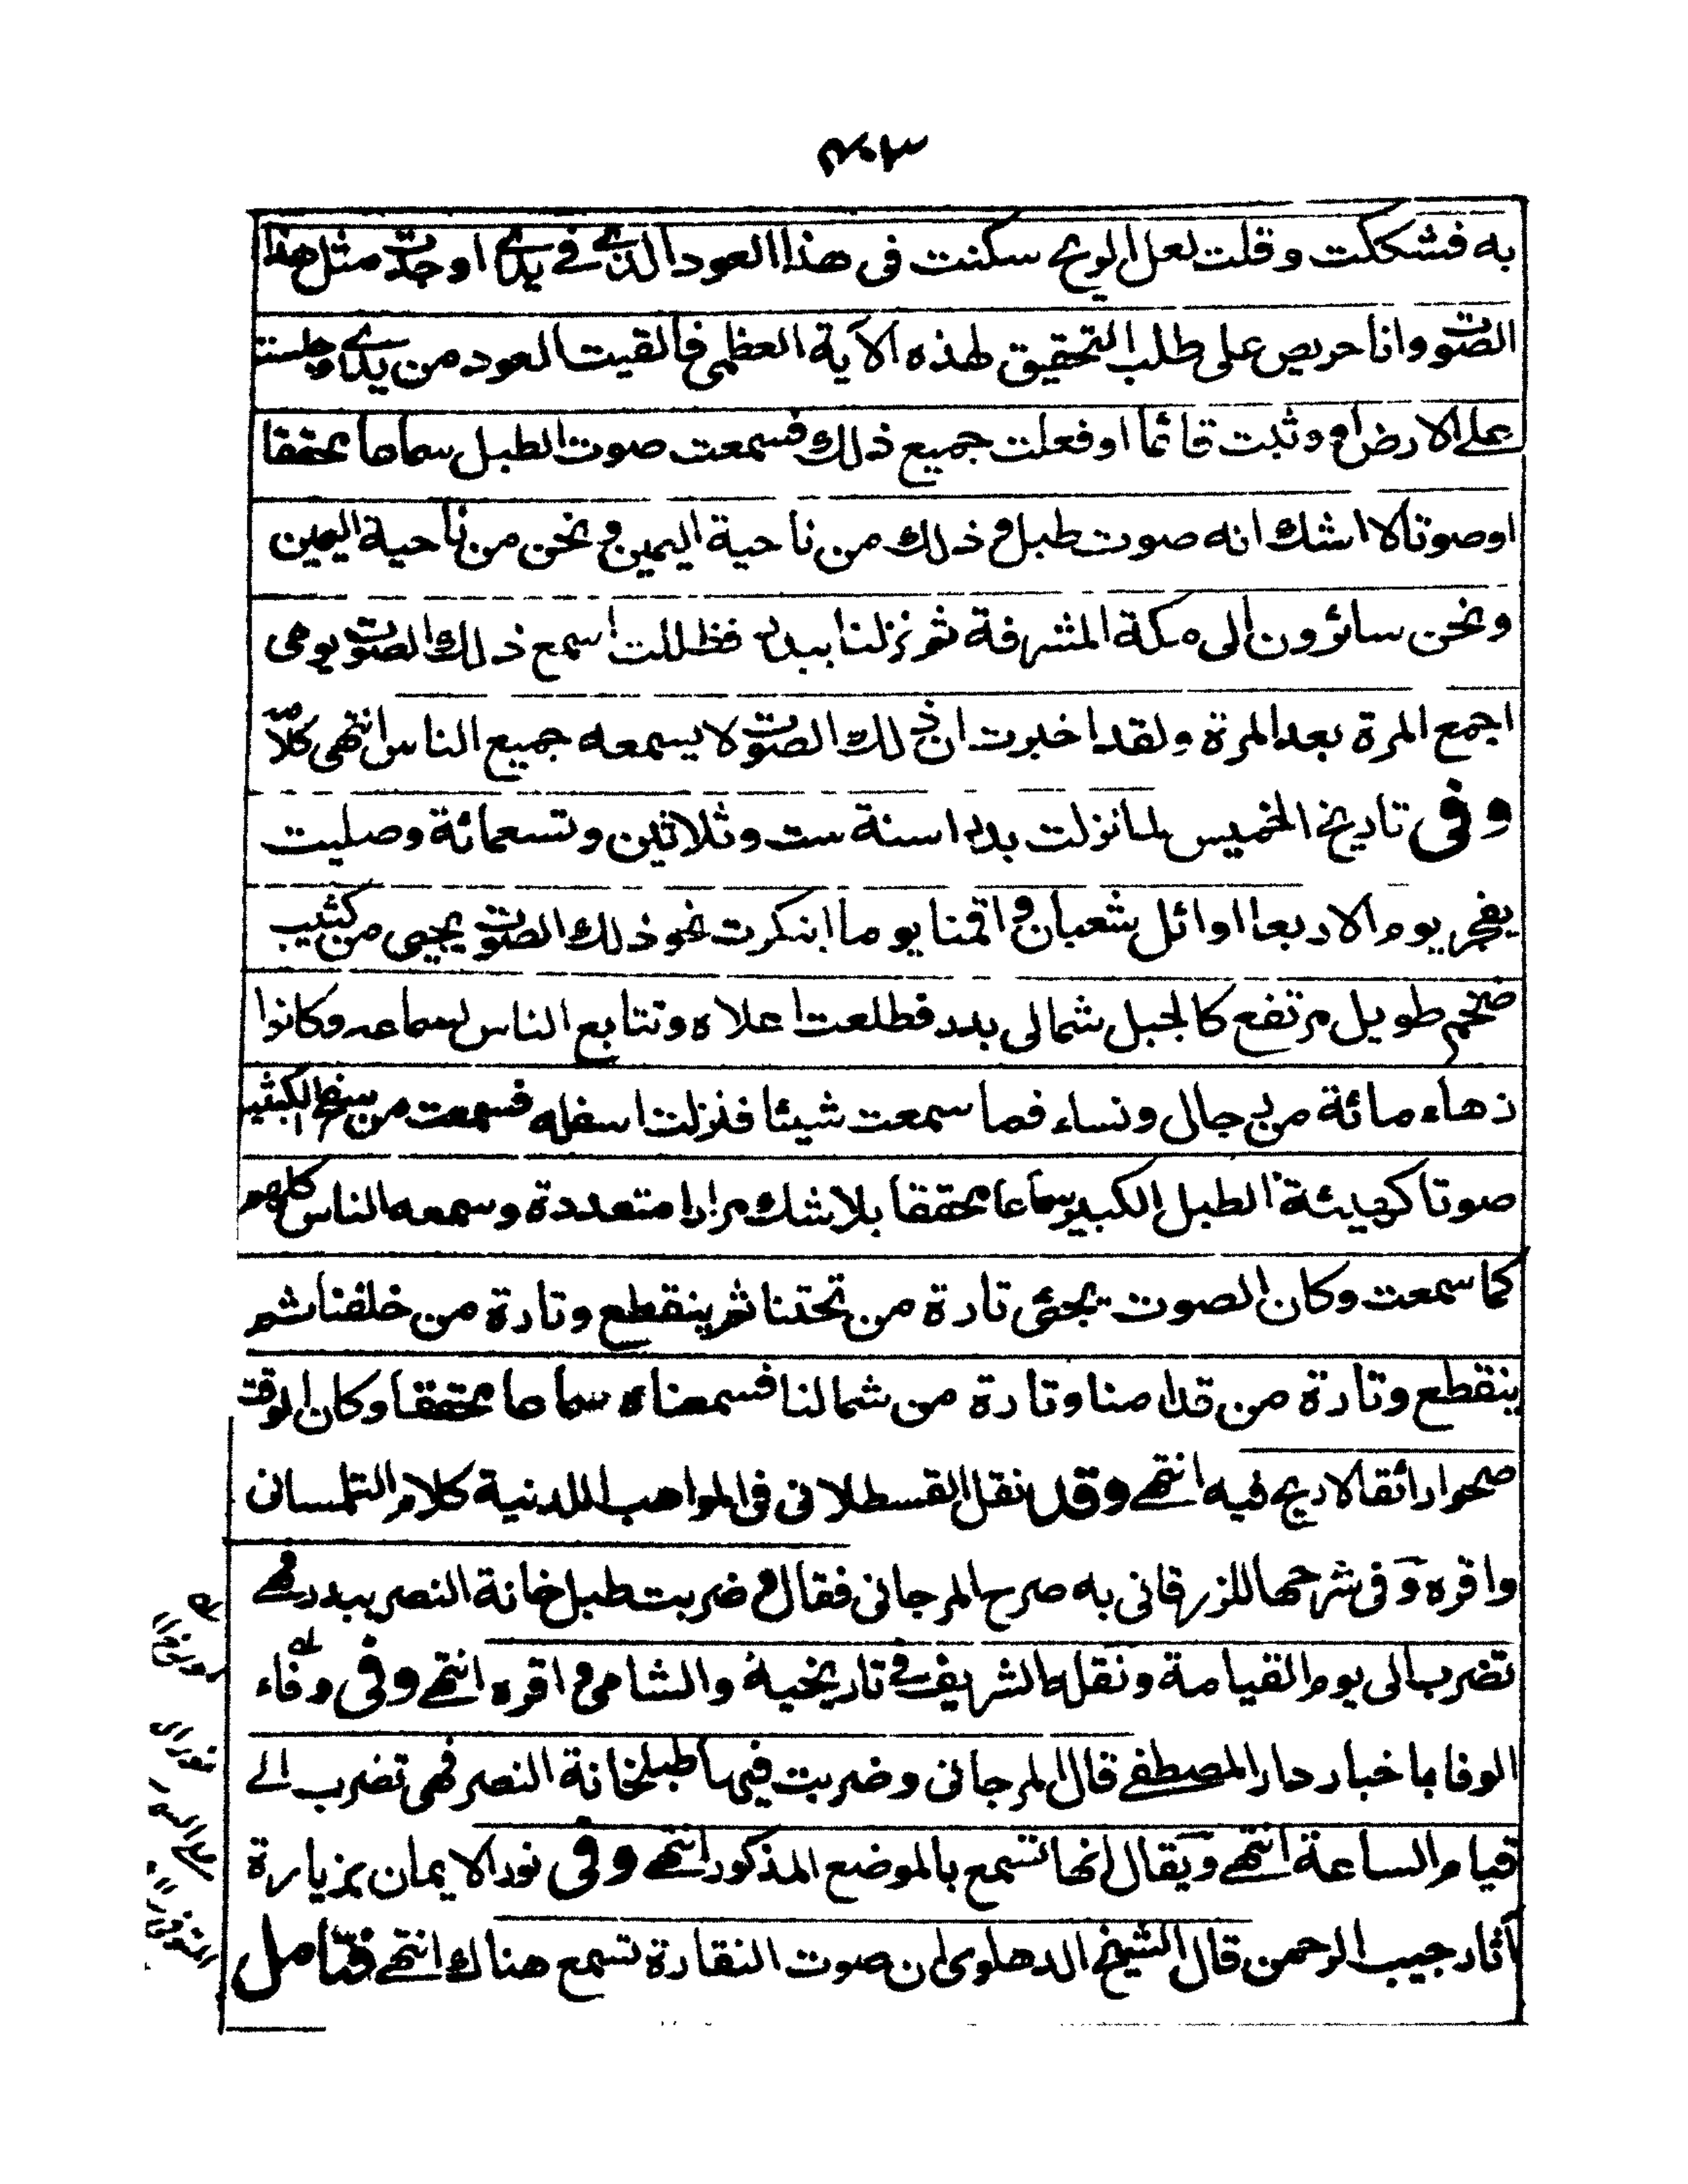 به فشككت وقلت لعل الريح سكنت فى هذا العود الذى فے يدى او حدث مثل هذا
الصوت وانا حريص على طلب التحقيق لهذه الآية العظمى فالقيت العود من يدى وجلست
على الارض او وثبت قائما او فعلت جميع ذلك فسمعت صوت الطبل سماعا محققا
او صوتا لا اشك انه صوت طبل وذلك من ناحية اليمين ونحن من ناحية اليمين
ونحن سائرون الى مكة المشرفة ثم نزلنا ببدر فظللت اسمع ذلك الصوت يومى
اجمع المرة بعد المرة ولقد اخبرت ان ذلك الصوت لا يسمعه جميع الناس انتهى كلامه
وفى تاريخ الخميس لما نزلت بدرا سنة ست وثلاثين وتسعمائة وصليت
بفجر يوم الاربعا اوائل شعبان واقمنا يوما ابتكرت نحو ذلك الصوت يجيى من كثيب
ضخم طويل مرتفع كالجبل شمالى بدر فطلعت اعلاه وتتابع الناس لسماعه وكانوا
زهاء مائة من رجال ونساء فما سمعت شيئا فنزلت اسفله فسمعت من سفح الكثيب
صوتا كهيئة الطبل الكبير سماعا محققا بلا شك مرارا متعددة وسمعه الناس كلهم
كما سمعت وكان الصوت يجئى تارة من تحتنا ثم ينقطع وتارة من خلفنا ثم
ينقطع وتارة من قدامنا وتارة من شمالنا فسمعناه سماعا محققا وكان الوقت
صحوا رائقا لا ريح فيه انتهے وقد نقل القسطلانى فى المواهب اللدنية كلام التلمسان
واقره وفى شرحها للزرقانى به صرح المرجانى فقال وضربت طبل خانة النصر ببدر فهے
تضرب الى يوم القيامة ونقله الشريف فے تاريخيه والشامى واقره انتهے وفى وفاء
الوفا باخبار دار المصطفے قال المرجانى وضربت فيها طبلخانة النصر فهى تضرب الے
قيام الساعة انتهے ويقال انها تسمع بالموضع المذكور انتهے وفى نور الايمان بزيارة
آثار حبيب الرحمن قال الشيخ الدهلوى ان صوت النقارة تسمع هناك انتهے فتامل